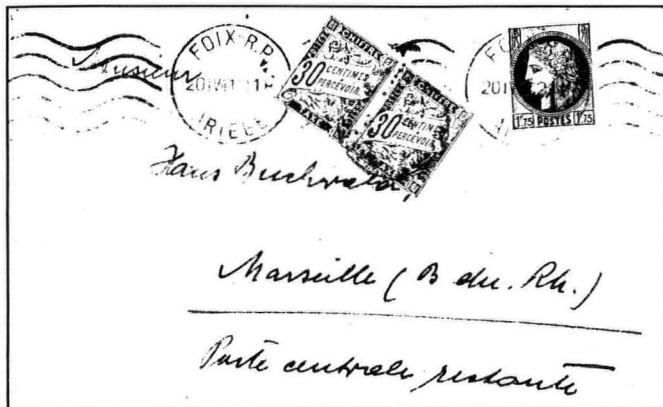 FOIX R.P.
20 IV 41
ARIEGE
CHIFFRE
30 CENTIMES
PERCEVOIR
TAXE
CHIFFRE
30 CENTIMES
PERCEVOIR
FO
20 IV
1F75 POSTES 1F75
Monsieur
Hans Buchwald,
Marseille (B du. Rh.)
Poste centrale restante